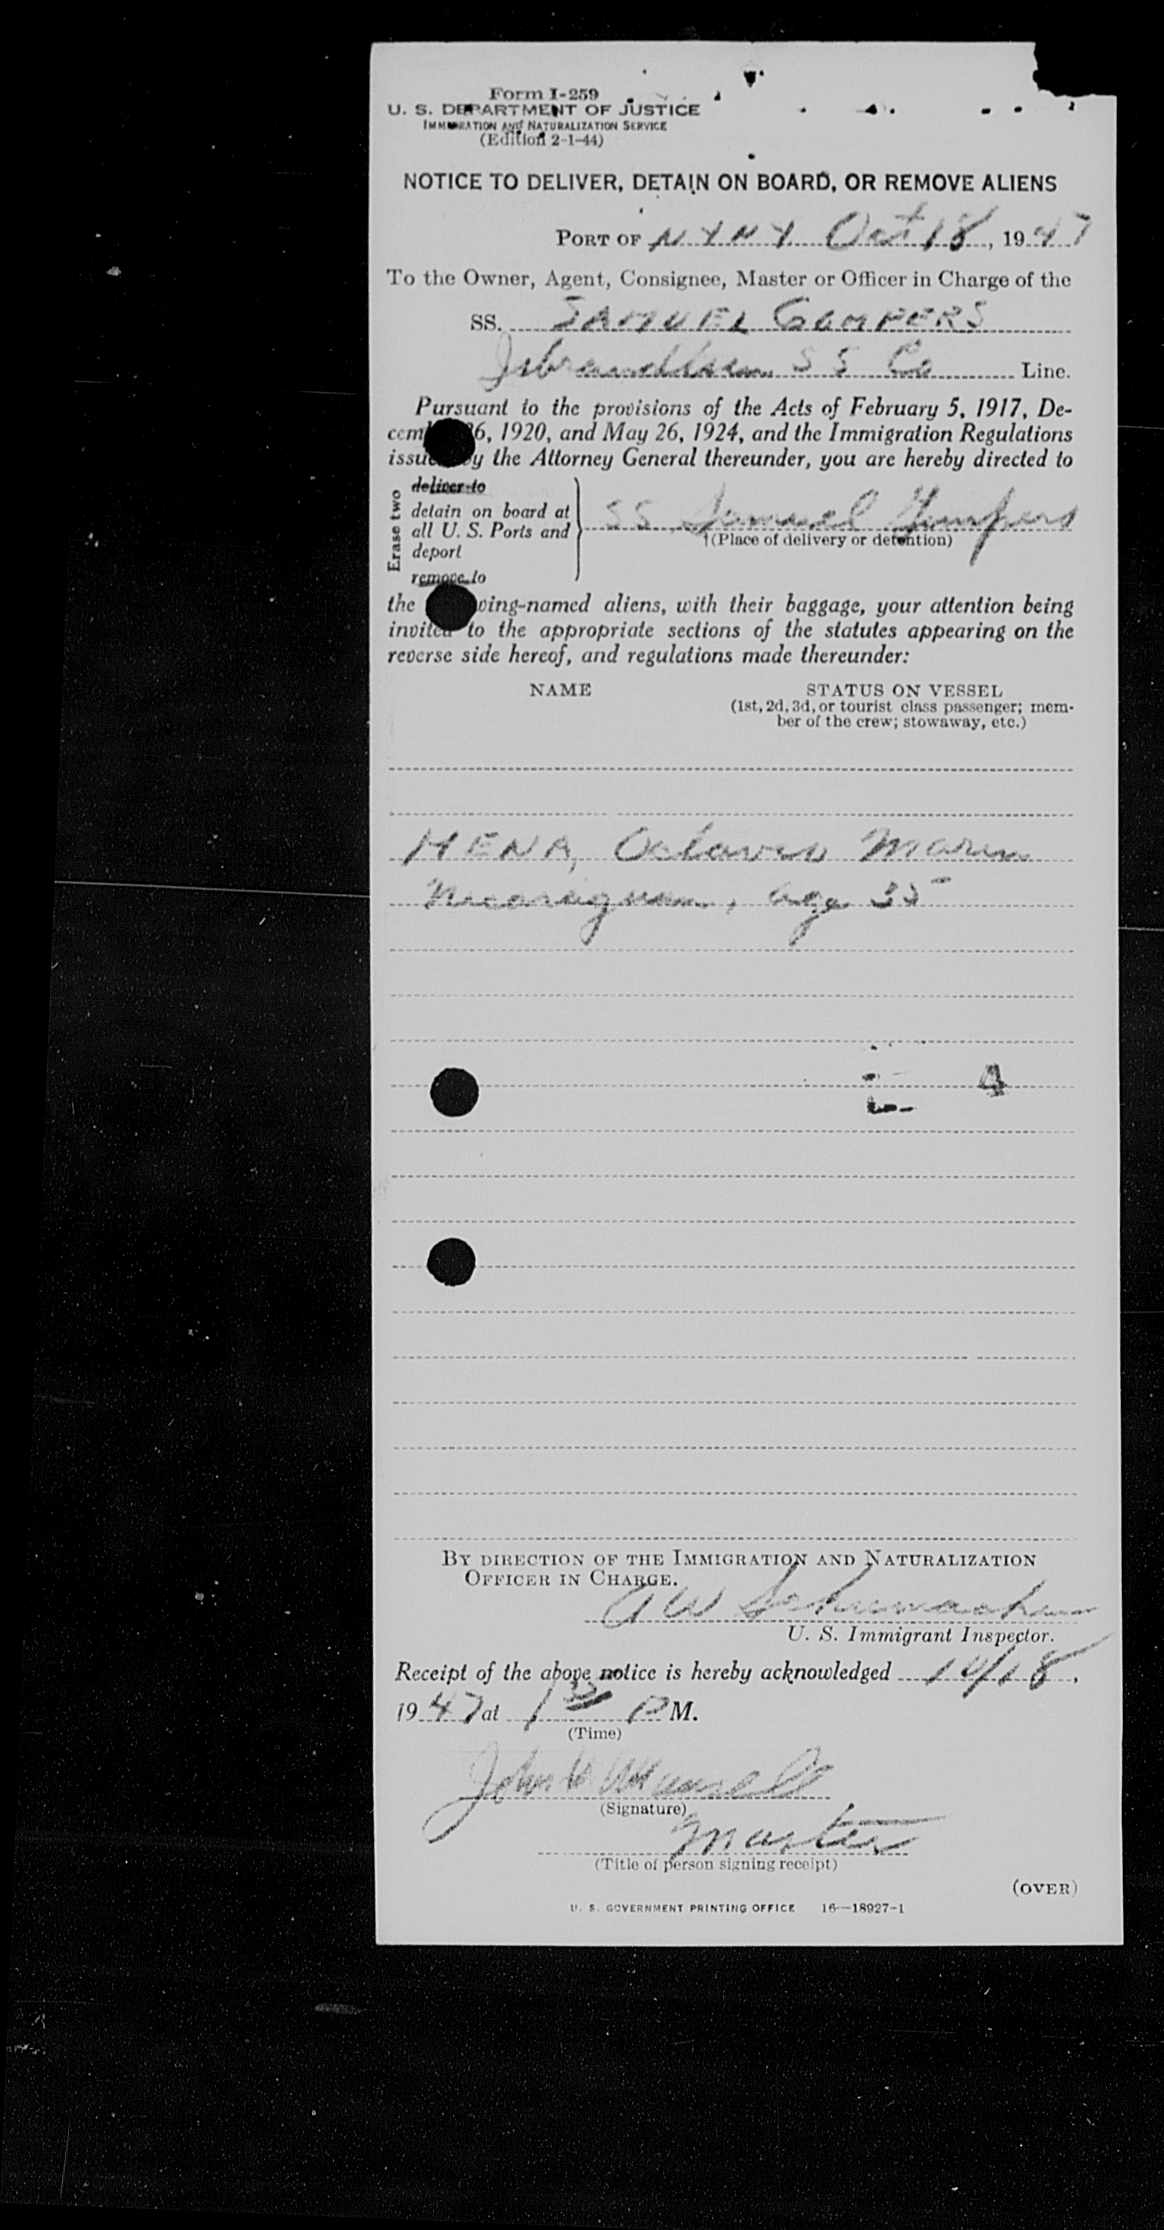 Form I-259
U. S. DEPARTMENT OF JUSTICE
IMMIGRATION AND NATURALIZATION SERVICE
(Edition 2-1-44)
NOTICE TO DELIVER, DETAIN ON BOARD, OR REMOVE ALIENS
PORT OF N Y N Y Oct 18, 1947
To the Owner, Agent, Consignee, Master or Officer in Charge of the
SS. SAMUEL GOMPERS
Isbrandtsen S S Co Line.
Pursuant to the provisions of the Acts of February 5, 1917, De-
cem 26, 1920, and May 26, 1924, and the Immigration Regulations
issued by the Attorney General thereunder, you are hereby directed to
Erase two
deliver to
detain on board at
all U. S. Ports and
deport
remove to
SS Samuel Gompers
†(Place of delivery or detention)
the owing-named aliens, with their baggage, your attention being
invited to the appropriate sections of the statutes appearing on the
reverse side hereof, and regulations made thereunder:
NAME STATUS ON VESSEL
(1st, 2d, 3d, or tourist class passenger; mem-
ber of the crew; stowaway, etc.)
MENA, Octavio Marin
Nicaraguan, age 35
4
BY DIRECTION OF THE IMMIGRATION AND NATURALIZATION
OFFICER IN CHARGE.
A W Schumacher
U. S. Immigrant Inspector.
Receipt of the above notice is hereby acknowledged 10/18,
1947 at 1 P M.
(Time)
John
(Signature)
Master
(Title of person signing receipt)
(OVER)
U. S. GOVERNMENT PRINTING OFFICE 16—18927-1